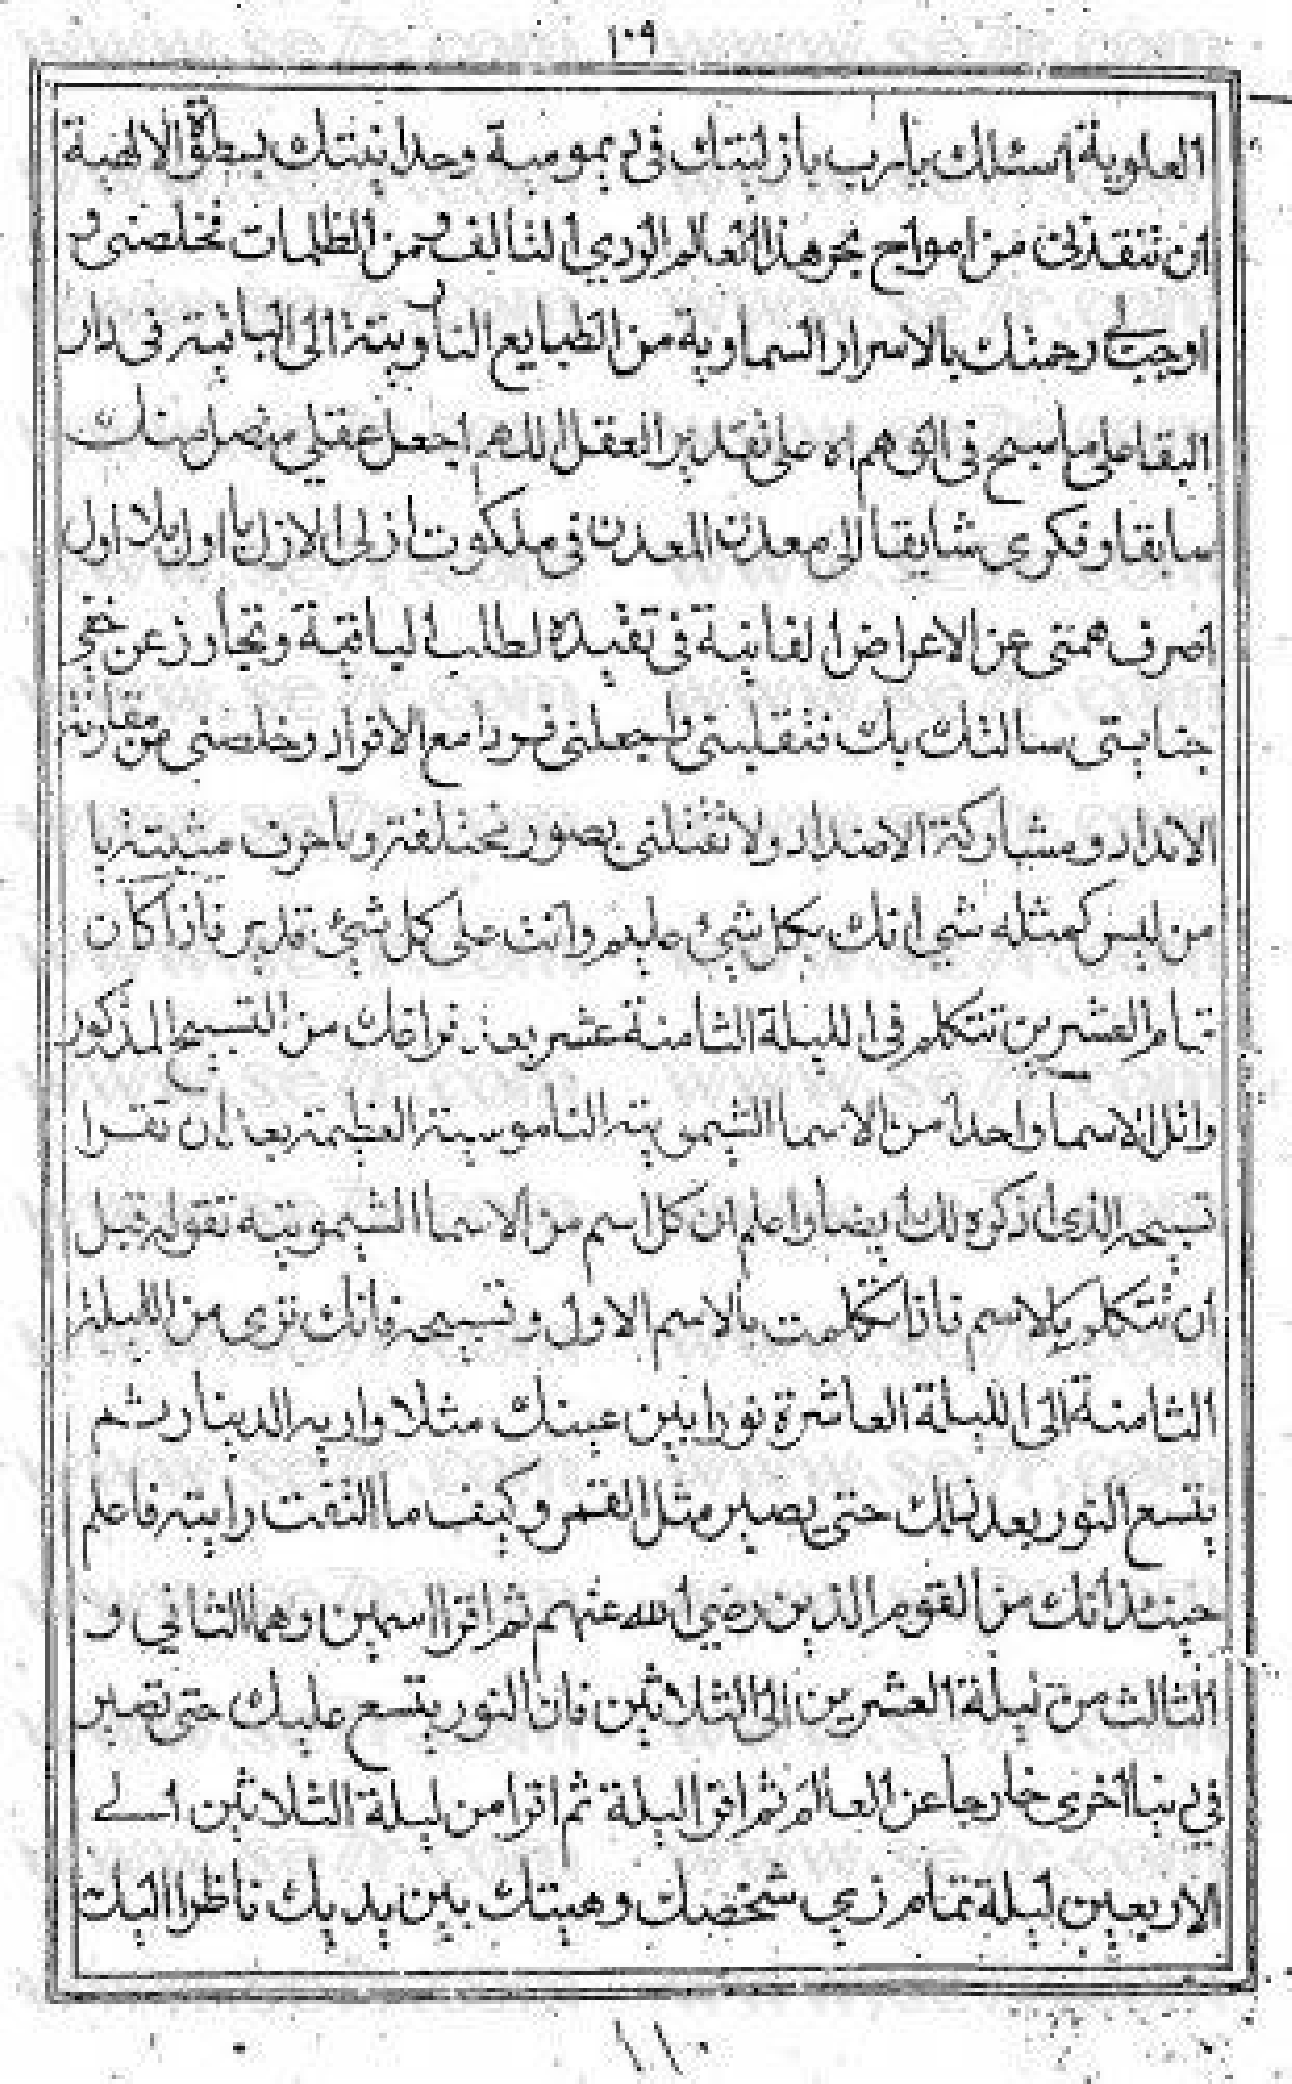 ١٠٩
العلوية اسئلك يارب بازليتك في ديمومية وحدانيتك بسطوة الالهية
ان تنقذني من امواج بحر هذا العالم الردي التالف ومن الظلمات تخلصني و
اوجب لي رحمتك بالاسرار السماوية من الطبايع النارية الى الباقية في دار
البقا على ما سبح في الوهم لا على تقدير العقل اللهم اجعل عقلي متصل منك
سابقا وفكري شايقا الى معدن المعدن في ملكوت ازلي الازل يا اول بلا اول
اصرف همتي عن الاعراض الفانية في تقييدة لطلب الباقية وتجاوز عن خفي
جنايتي سالتك بك فتقلبني واجعلني فردا مع الافراد وخلصني من مقارنة
الانداد ومشاركة الاضداد ولا تقتلني بصور مختلفة وباحرف مثبتة يا
من ليس كمثله شي انك بكل شئ عليم وانت على كل شئ قدير فاذا كان
تمام العشرين تتكلم في الليلة الثامنة عشر بعد فراغك من التسبيح المذكور
واتل الاسما واحدا من الاسما الشيموينه الناموسية العظيمة بعد ان تقرا
تسبيحه الذي اذكره لك ايضا واعلم ان كل اسم من الاسما الشيموينه تقوله قبل
ان تتكلم بالاسم فاذا تكلمت بالاسم الاول وتسبيحه فانك تري من الليلة
الثامنة الى الليلة العاشرة نورا بين عينك مثلا واربه الدينار ثم
يتسع النور بعد ذلك حتى يصير مثل القمر وكيف ما التقت رايته فاعلم
حينئذ انك من القوم الذين رضي الله عنهم ثم اقرا اسمين وهما الثاني و
الثالث من ليلة العشرين الى الثلاثين فان النور يتسع عليك حتى تصير
في دنيا اخرى خارجا عن العالم ثم اقرا ليلة ثم اقرا من ليلة الثلاثين الے
الاربعين ليلة تمام زي شخصك وهيتك بين يديك ناظرا اليك
١١٠